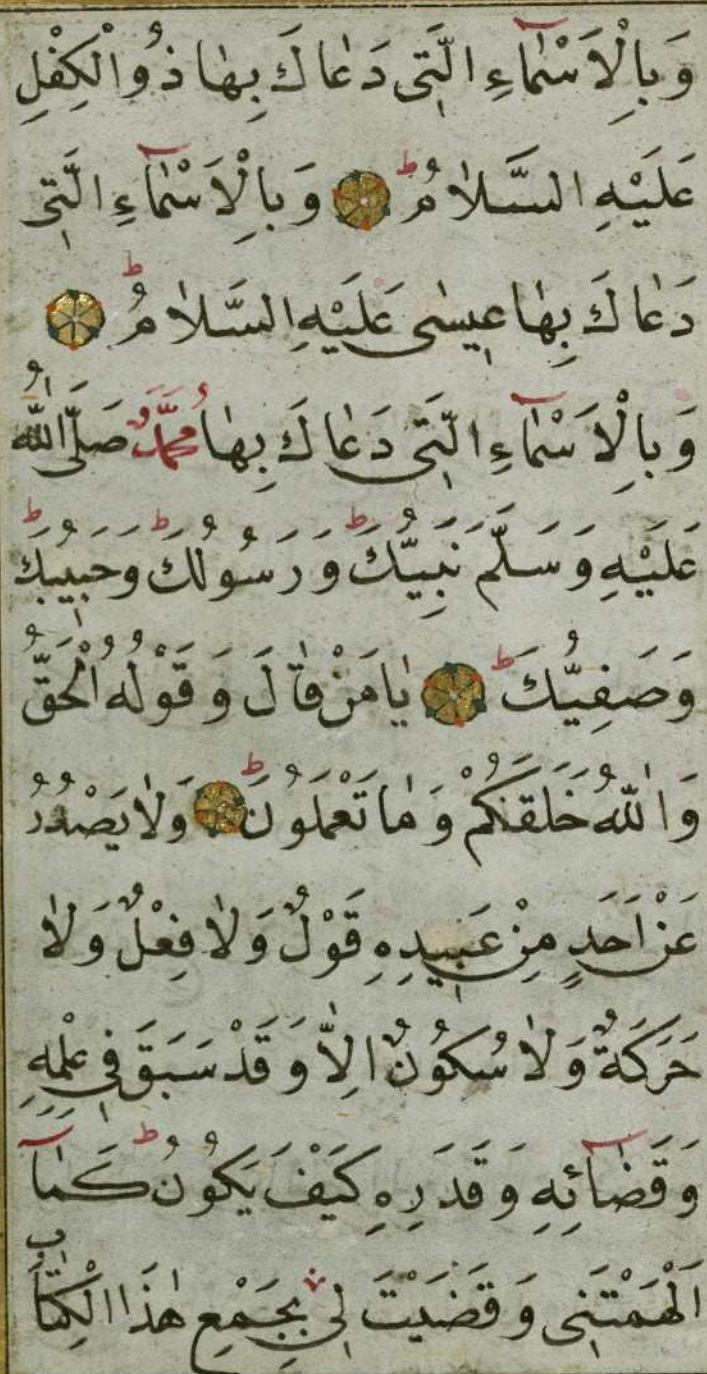 وَبِالْاَسْمٰٓاءِ الَّتٖى دَعَاكَ بِهٰا ذُوالْكِفْلِ
عَلَيْهِ السَّلٰامُ ط وَبِالْاَسْمٰٓاءِ الَّتٖى
دَعٰاكَ بِهٰا عٖيسٰى عَلَيْهِ السَّلٰامُ ط
وَبِالْاَسْمٰٓاءِ الَّتٖى دَعٰاكَ بِهٰا مُحَمَّدٌ صَلَّى اللّٰهُ
عَلَيْهِ وَسَلَّمَ نَبِيُّكَ ط وَرَسُولُكَ ط وَحَبٖيبُكَ ط
وَصَفِيُّكَ ط يٰامَنْ قٰالَ وَقَوْلُهُ الْحَقُّ
وَاللّٰهُ خَلَقَكُمْ وَمٰا تَعْمَلُونَ ط وَلٰا يَصْدُرُ
عَنْ اَحَدٍ مِنْ عَبٖيدِهِ قَوْلٌ وَلٰا فِعْلٌ وَلٰا
حَرَكَةٌ وَلٰا سُكُونٌ اِلاَّ وَقَدْ سَبَقَ فٖى عِلْمِهِ
وَقَضٰٓائِهِ وَقَدَرِهِ كَيْفَ يَكُونُ ط كَمٰٓا
اَلْهَمْتَنٖى وَقَضَيْتَ لٖى بِجَمْعِ هٰذَا الْكِتٰابِ